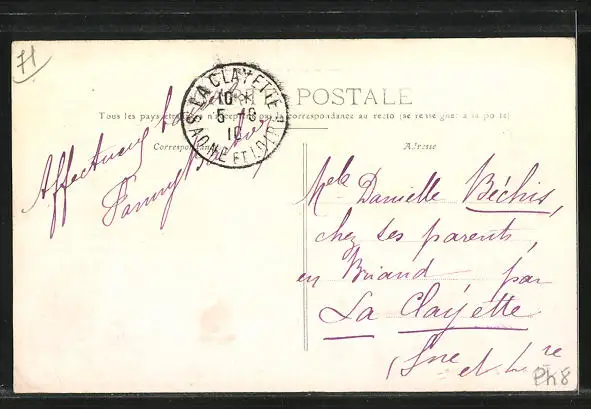 71
CARTE POSTALE
Tous les pays étrangers n'acceptent pas la correspondance au recto (se renseigner à la poste)
Correspondance
Adresse
LA CLAYETTE
10
5 -10
10
SAONE ET LOIRE
Affectueux
Fanny
Melle Danielle Béchis,
chez ses parents,
en Briand par
La Clayette
(Sne et Lre
Ph8